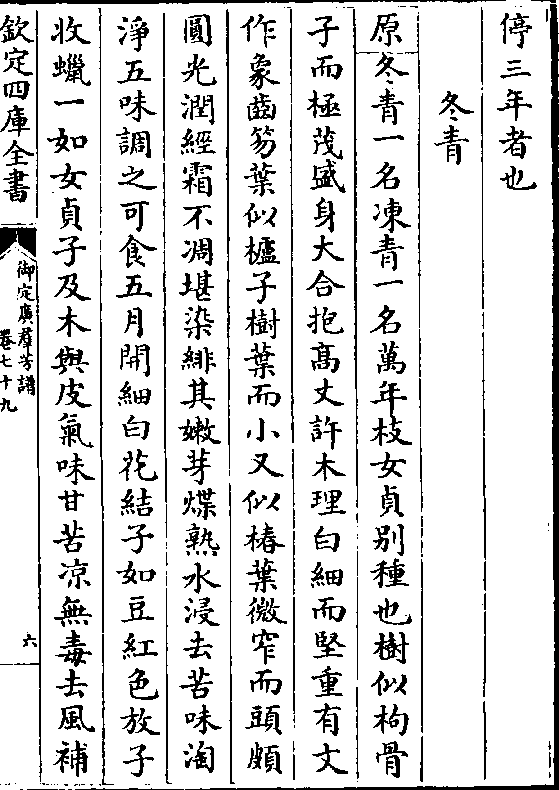 停三年者也
冬青
原冬青一名凍青一名萬年枝女貞别種也樹似枸骨
子而極茂盛身大合抱髙丈許木理白細而堅重有文
作象齒笏葉似櫨子樹葉而小又似椿葉微窄而頭頗
圓光潤經霜不凋堪染緋其嫩芽煠熟水浸去苦味淘
淨五味調之可食五月開細白花結子如豆紅色放子
收蠟一如女貞子及木與皮氣味甘苦凉無毒去風補
欽定四庫全書
御定廣羣芳譜
卷七十九
六